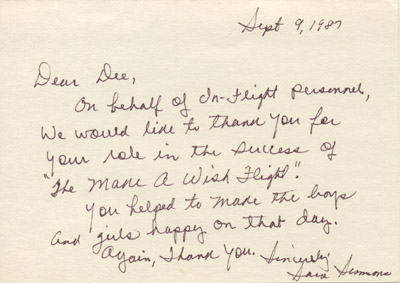 Sept 9, 1987
Dear Dee,
On behalf of In-Flight personnel,
We would like to thank you for
your role in the success of
"The Make A Wish Flight".
You helped to make the boys
and girls happy on that day.
Again, Thank you. Sincerely,
Sara Simmons